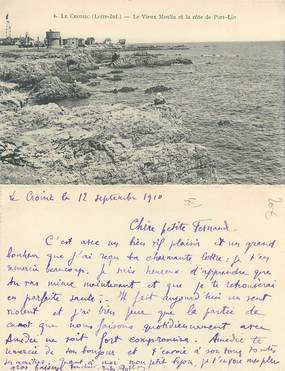 6. LE CROISIC (Loire-Inf.) — Le Vieux Moulin et la côte de Port-Lin
Le Croisic le 12 septembre 1910
Chère petite Fernand.
C'est avec un bien vif plaisir et un grand
bonheur que j'ai reçu ta charmante lettre; je t'en
remercie beaucoup. Je suis heureux d'apprendre que
tu vas mieux maintenant et que je te trouverai
en parfaite santé. Il fait aujourd'hui un vent
violent et j'ai bien peur que la partie de
canot que nous faisons quotidiennement avec
Amédée ne soit fort compromise. Amédée te
remercie de son bonjour et t'envoie à son tour toutes
ses amitiés. Quant à moi je t'envoie mes plus
gros baisers